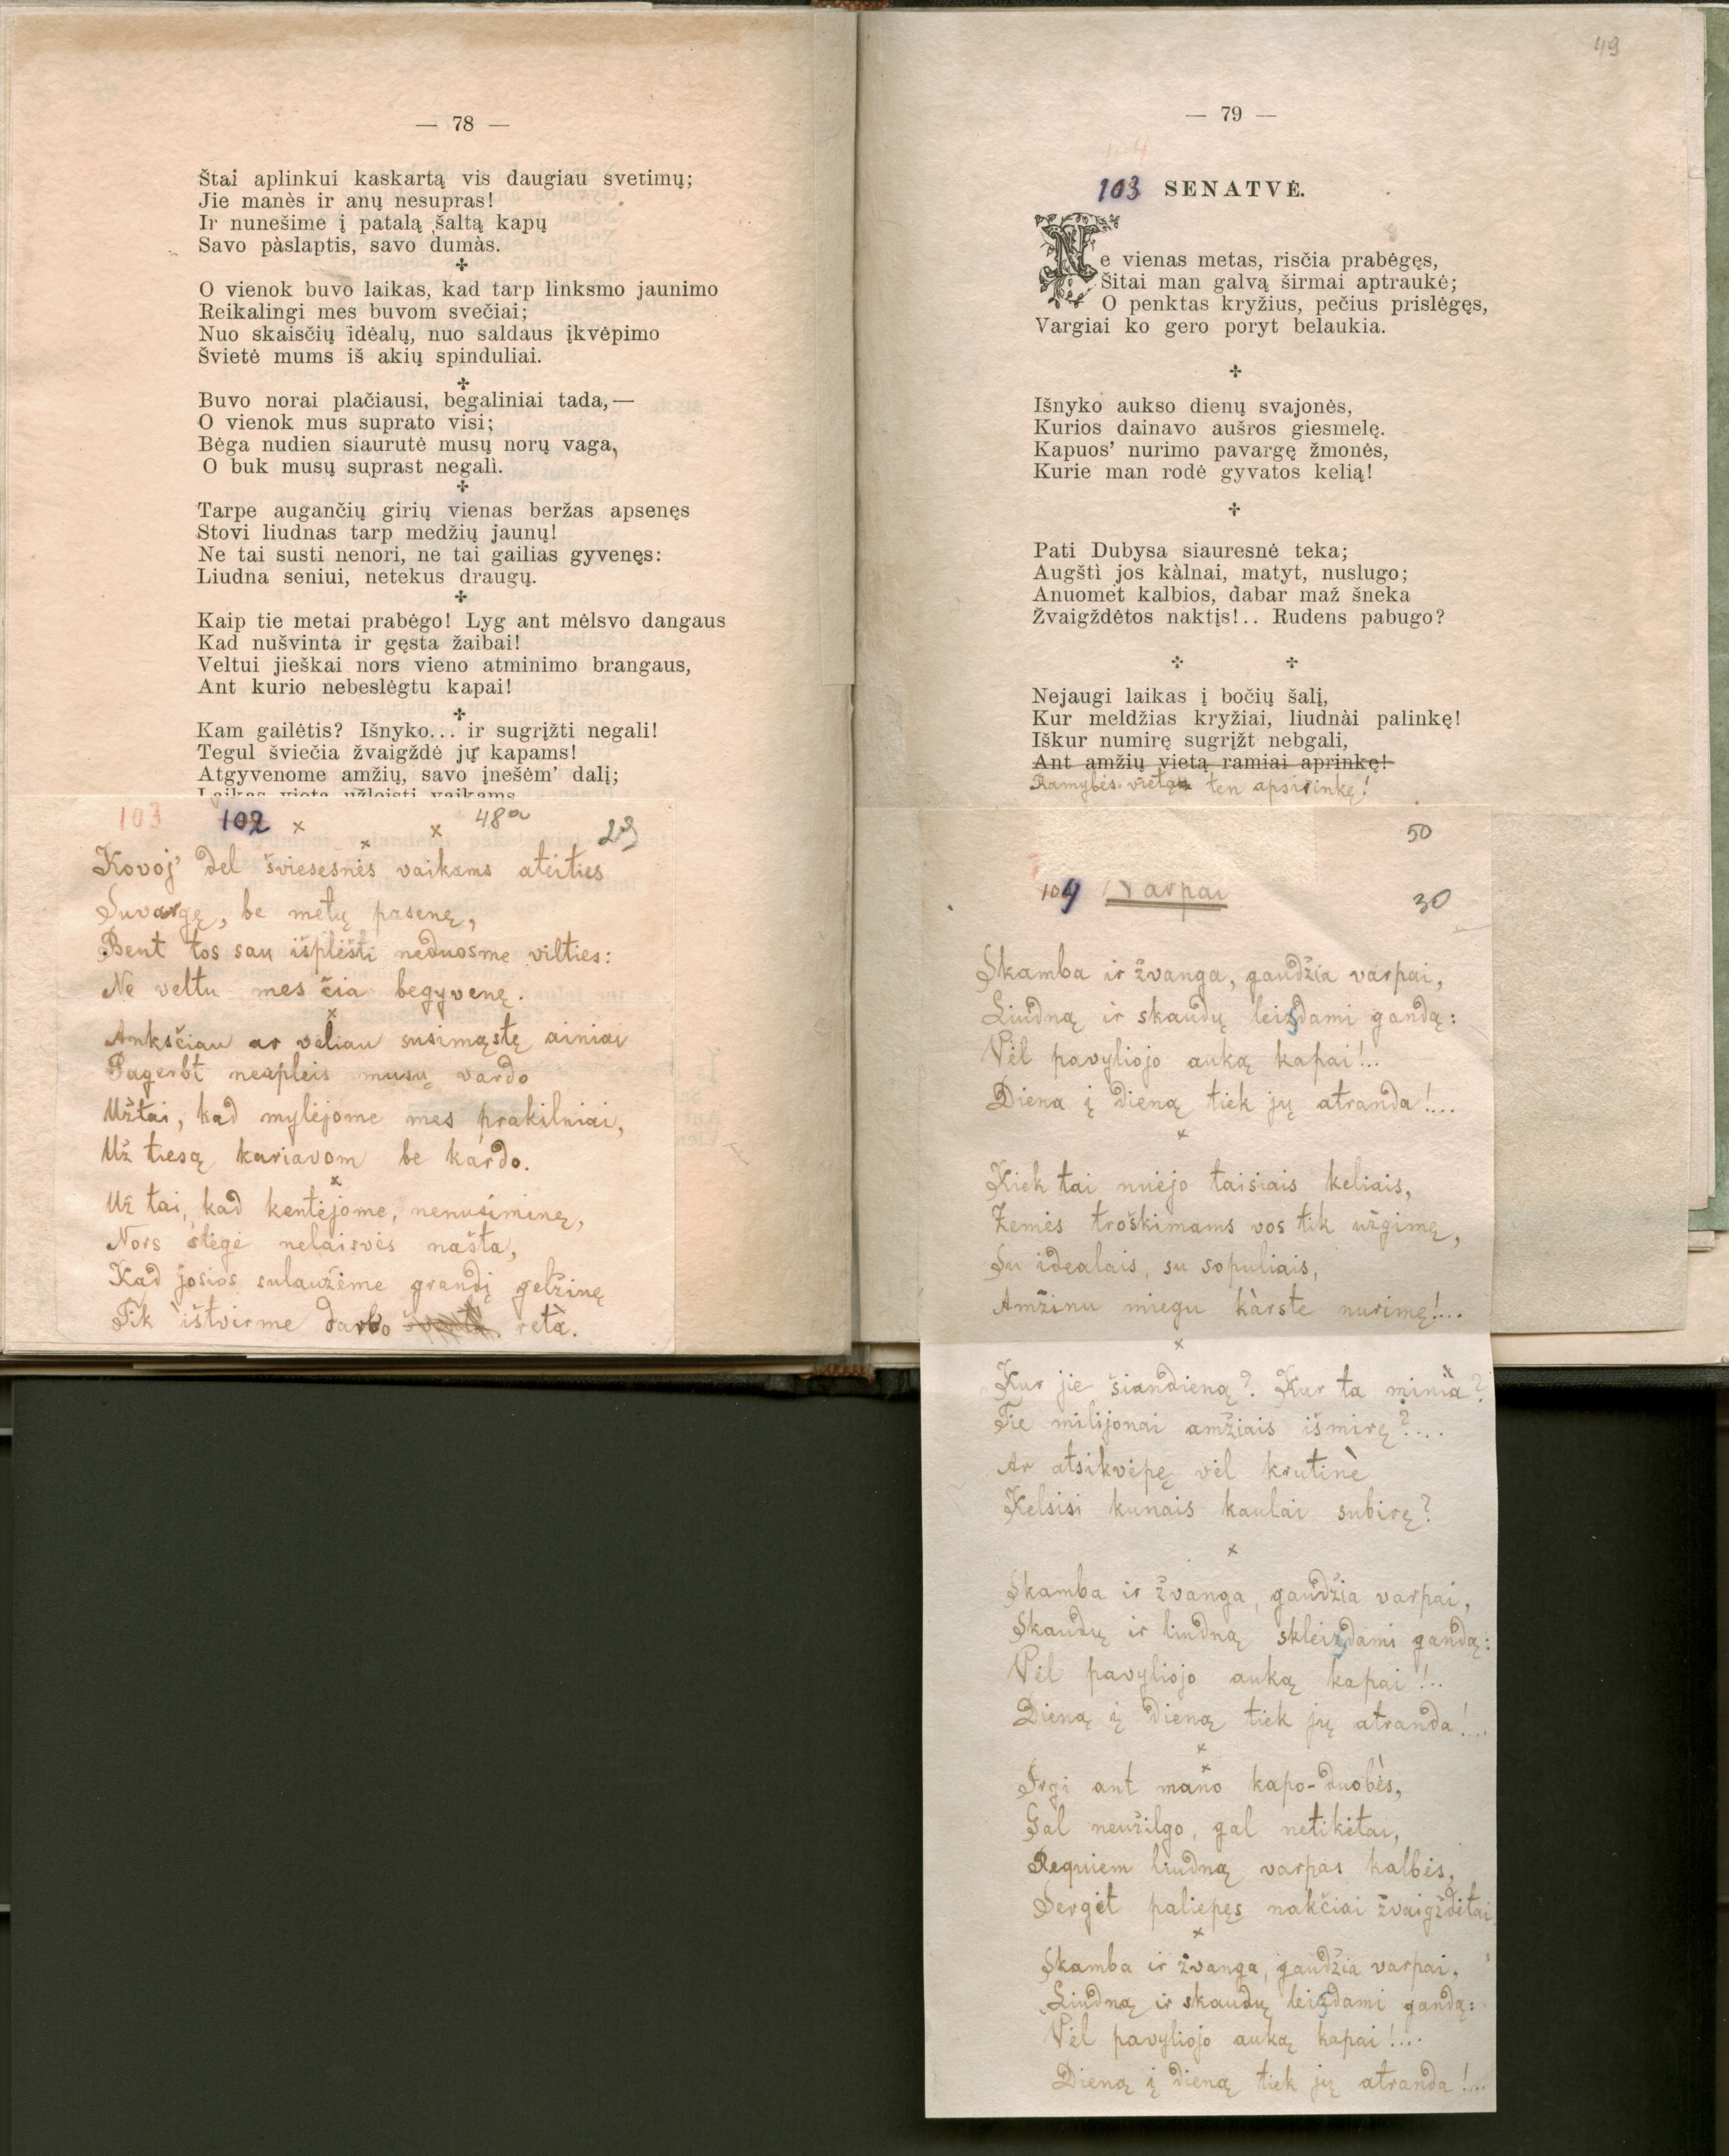 — 78 —
Štai aplinkui kaskartą vis daugiau svetimų;
Jie manès ir anų nesupras!
Ir nunešime į patalą šaltą kapų
Savo pàslaptis, savo dumàs.
O vienok buvo laikas, kad tarp linksmo jaunimo
Reikalingi mes buvom svečiai;
Nuo skaisčių idėalų, nuo saldaus įkvėpimo
Švietė mums iš akių spinduliai.
Buvo norai plačiausi, begaliniai tada,—
O vienok mus suprato visi;
Bėga nudien siaurutė musų norų vaga,
O buk musų suprast negalì.
Tarpe augančių girių vienas beržas apsenęs
Stovi liudnas tarp medžių jaunų!
Ne tai susti nenori, ne tai gailias gyvenęs:
Liudna seniui, netekus draugų.
Kaip tie metai prabėgo! Lyg ant mėlsvo dangaus
Kad nušvinta ir gęsta žaibai!
Veltui jieškai nors vieno atminimo brangaus,
Ant kurio nebeslėgtu kapai!
Kam gailėtis? Išnyko... ir sugrįžti negali!
Tegul šviečia žvaigždė jų kapams!
Atgyvenome amžių, savo įnešėm' dalį;
Laikas vietą užleisti vaikams
103 102 x x x 48a 29
Kovoj' del šviesesnės vaikams ateities
Suvargę, be metų pasenę,
Bent tos sau išplėšti neduosme vilties:
Ne veltu mes čia begyvenę.
x
Anksčiau ar vėliau susimąstę ainiai
Pagerbt neapleis musų vardo
Užtai, kad mylėjome mes prakilniai,
Už tiesą kariavom be kardo.
x
Už tai, kad kentėjome, nenusiminę,
Nors slėgė nelaisvės našta,
Kad josios sulaužėme grandį gelžinę
Tik ištvirme darbo retà.
49
— 79 —
104
103 SENATVĖ.
Ne vienas metas, risčia prabėgęs,
Šitai man galvą širmai aptraukė;
O penktas kryžius, pečius prislėgęs,
Vargiai ko gero poryt belaukia.
Išnyko aukso dienų svajonės,
Kurios dainavo aušros giesmelę.
Kapuos' nurimo pavargę žmonės,
Kurie man rodė gyvatos kelią!
Pati Dubysa siauresnė teka;
Augštì jos kàlnai, matyt, nuslugo;
Anuomet kalbios, dabar maž šneka
Žvaigždėtos naktįs!.. Rudens pabugo?
Nejaugi laikas į bočių šalį,
Kur meldžias kryžiai, liudnài palinkę!
Iškur numirę sugrįžt nebgali,
Ant amžių vietą ramiai aprinkę!
Ramybės vietą ten apsirinkę!
50
104 Varpai 30
Skamba ir žvanga, gaudžia varpai,
Liudną ir skaudų leizdami gandą:
Vėl pavyliojo auką kapai!..
Diena į dieną tiek jų atranda!...
x
Kiek tai nuėjo taisiais keliais,
Žemės troškimams vos tik užgimę,
Su idealais, su sopuliais,
Amžinu miegu kàrste nurimę!...
x
Kur jie šiandieną? Kur ta minià?
Tie milijonai amžiais išmirę?...
Ar atsikvėpę vėl krutinė
Kelsisi kunais kaulai subirę?
x
Skamba ir žvanga, gaudžia varpai,
Skaudų ir liudną skleizdami gandą:
Vėl pavyliojo auką kapai!..
Dieną į dieną tiek jų atranda!...
x
Irgi ant mano kapo-duobės,
Gal neužilgo, gal netikėtai,
Requiem liudną varpas kalbės,
Sergėt paliepęs nakčiai žvaigždėtai
x
Skamba ir žvanga, gaudžia varpai,
Liudną ir skaudų leizdami gandą:
Vėl pavyliojo auką kapai!...
Dieną į dieną tiek jų atranda!...